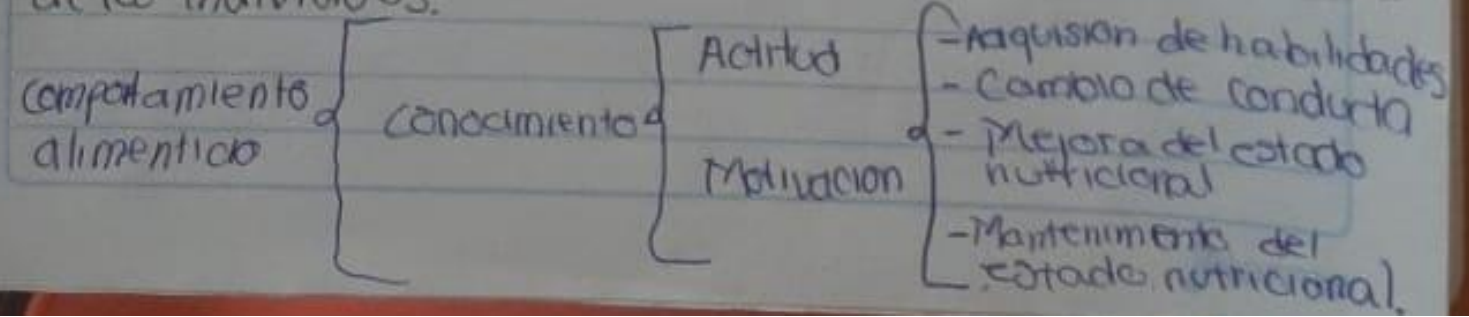 comportamiento
alimenticio
conocimiento
Actitud
Motivacion
-Aaquision de habilidades
- Cambio de conducta
- Mejora del estado
nutricional
-Mantenimento del
estado nutricional.